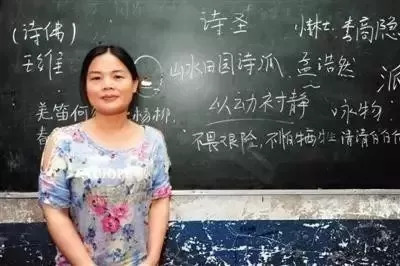 (诗佛) 诗圣 李商隐
王维 山水田园诗派, 孟浩然 派
羌笛何 杨柳, 以动衬静 咏物,
春 不畏艰险,不怕牺牲 清清白白